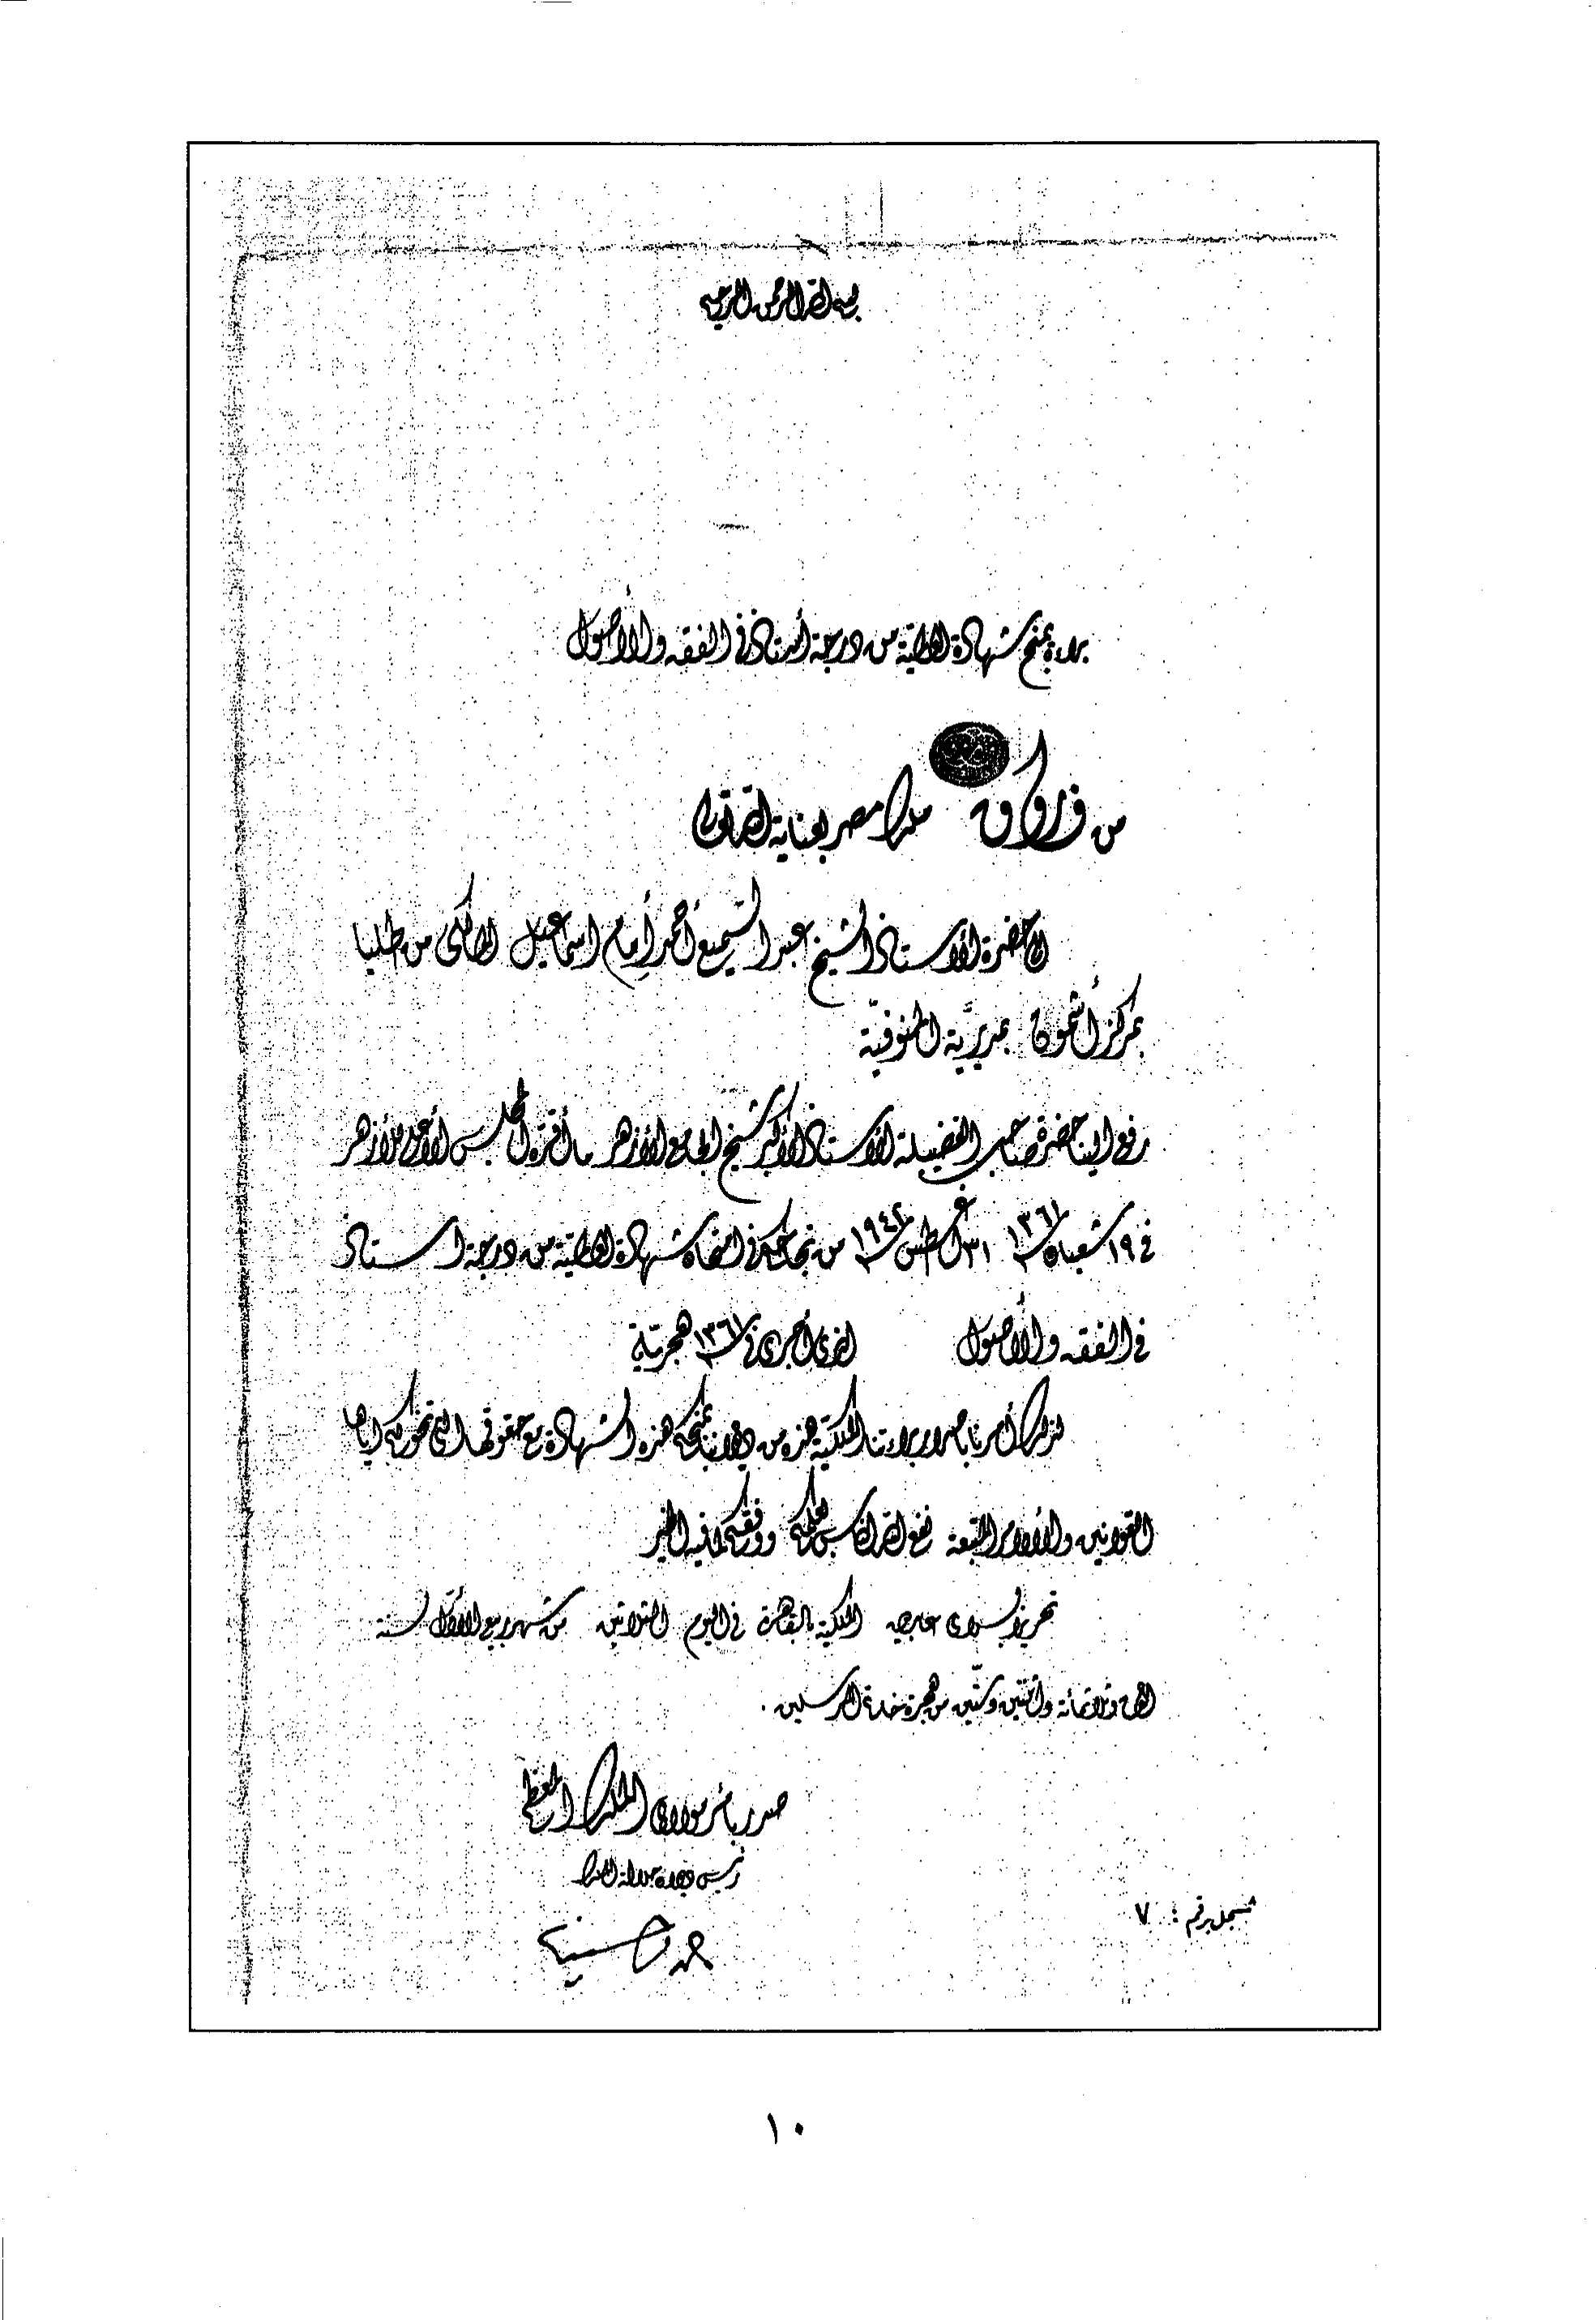 بسم الله الرحمن الرحيم
براءة بمنح شهادة العالمية من درجة أستاذ في الفقه والأصول
من فاروق ملك مصر بعناية الله تعالى
إلى حضرة الأستاذ الشيخ عبد السميع أحمد إمام اسماعيل المالكي من طليا
بمركز أشمون بمديرية المنوفية
رفع إلينا حضرة صاحب الفضيلة الأستاذ الأكبر شيخ الجامع الأزهر ما أقره المجلس الأعلى للأزهر
في ١٩ شعبان سنة ١٣٦١ ٣١ أغسطس سنة ١٩٤٢ من نجاحكم في امتحان شهادة العالمية من درجة استاذ
في الفقه والأصول الذي أجري في سنة ١٣٦١ هجرية
لذلك أمرنا بإصدار براءتنا الملكية هذه من ديواننا بمنحكم هذه الشهادة مع حقوقها التي تخولكم إياها
القوانين والأوامر المتبعة نفع الله الناس بعلمكم ووفقكم لما فيه الخير
تحريرا بسراي عابدين الملكية بالقاهرة في اليوم الثلاثين من شهر ربيع الأول سنة
ألف وثلاثمائة واثنتين وستين من هجرة خاتم المرسلين .
صدر بأمر مولاي الملك المعظم
رئيس ديوان جلالة الملك
مسجل برقم : ٧
١٠